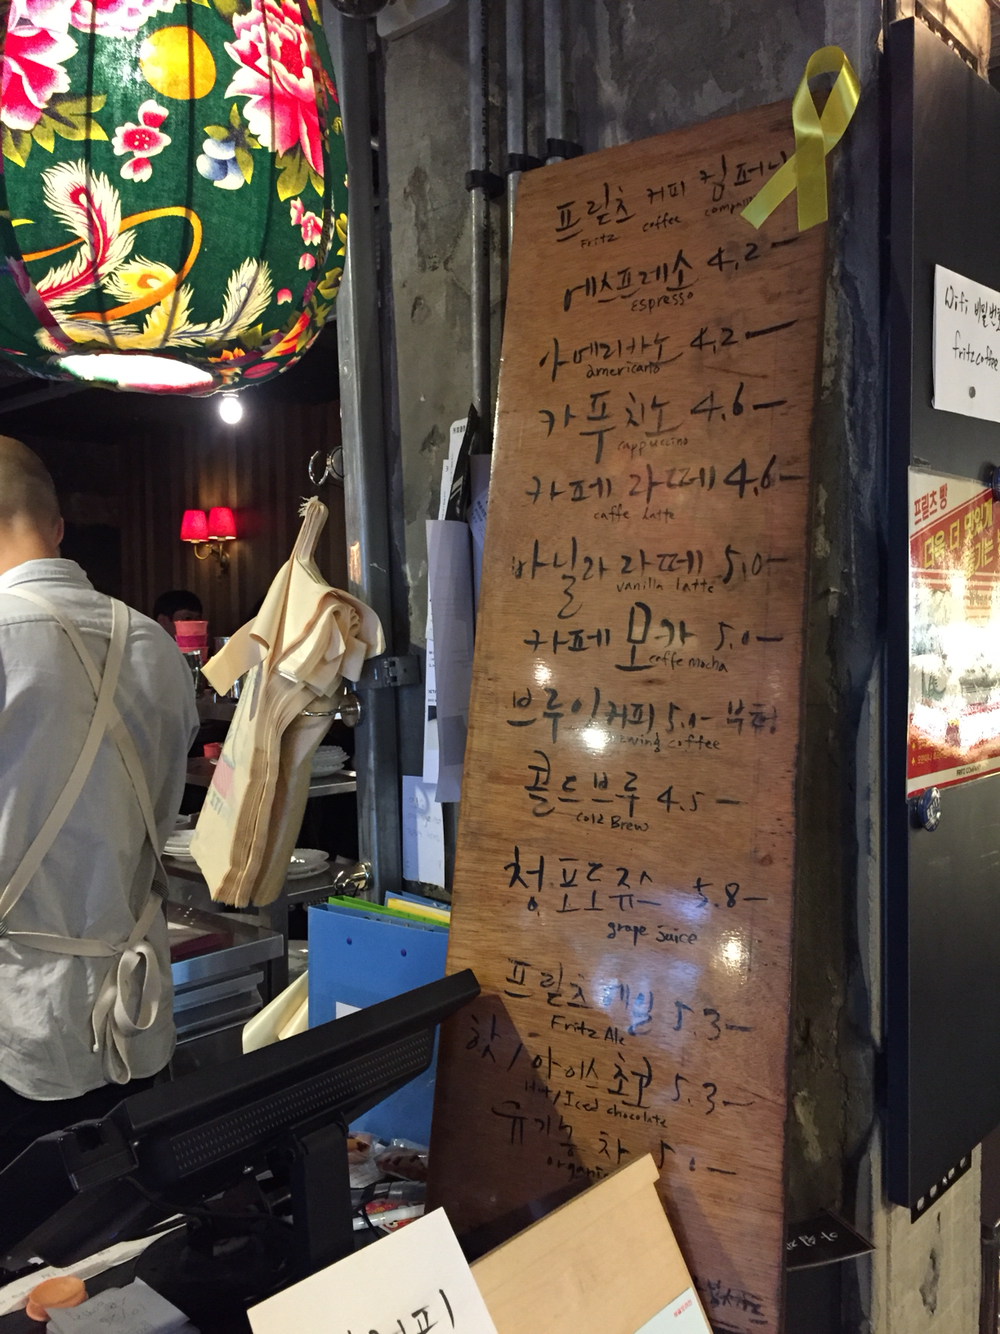 프릳츠 커피 컴퍼니
Fritz coffee company
에스프레소 4.2-
espresso
아메리카노 4.2-
americano
카푸치노 4.6-
cappuccino
카페 라떼 4.6-
caffe latte
바닐라 라떼 5.0-
vanilla latte
카페 모카 5.0-
caffe mocha
브루잉 커피 5.0- 부터
brewing coffee
콜드브루 4.5-
Cold Brew
청포도쥬스 5.8-
grape juice
프릳츠 에일 5.3-
Fritz Ale
핫/아이스 초코 5.3-
Hot/Iced chocolate
유기농 차 5.0-
organic
wifi 비밀번호
fritzcoffee
프릳츠 빵
더욱 더 맛있게